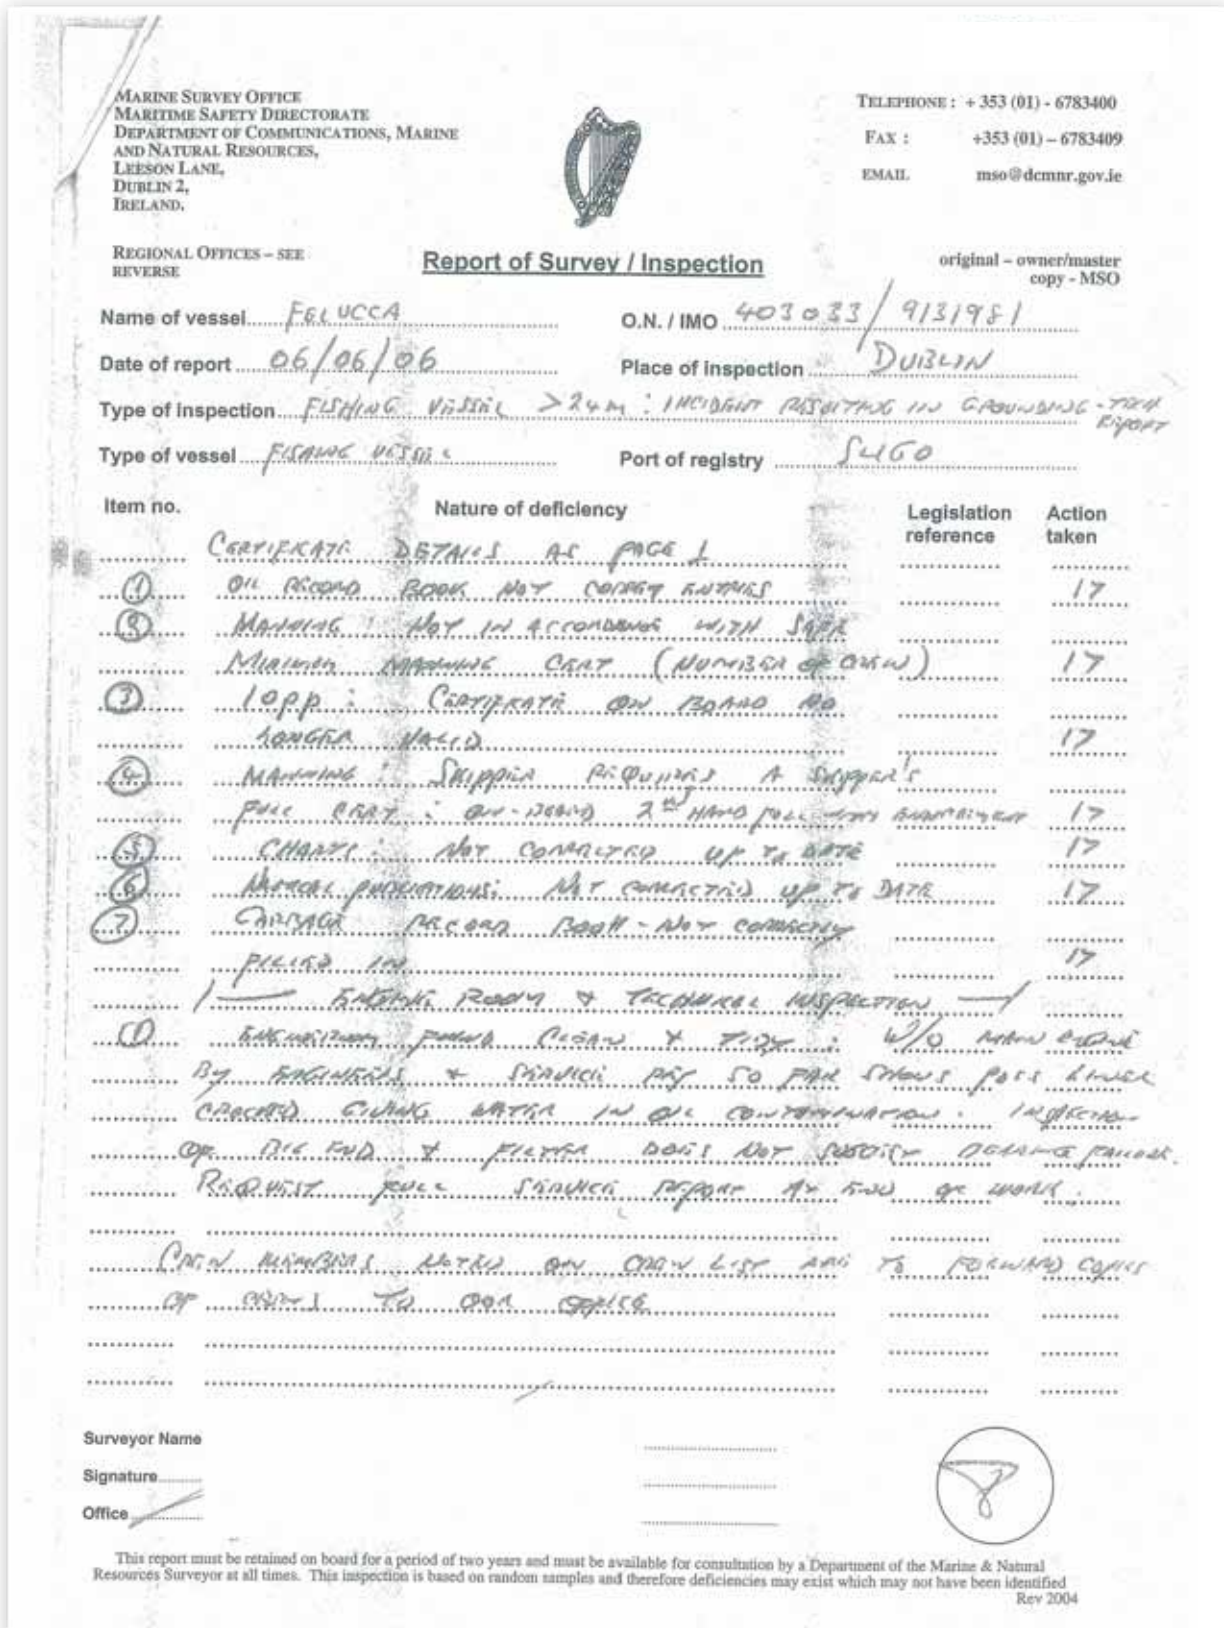 MARINE SURVEY OFFICE
MARITIME SAFETY DIRECTORATE
DEPARTMENT OF COMMUNICATIONS, MARINE
AND NATURAL RESOURCES,
LEESON LANE,
DUBLIN 2,
IRELAND.
TELEPHONE : + 353 (01) - 6783400
FAX : +353 (01) – 6783409
EMAIL mso@dcmnr.gov.ie
REGIONAL OFFICES – SEE
REVERSE
Report of Survey / Inspection
original – owner/master
copy - MSO
Name of vessel FELUCCA O.N. / IMO 403033 / 9131981
Date of report 06/06/06 Place of inspection DUBLIN
Type of inspection FISHING VESSEL >24m : INCIDENT RESULTING IN GROUNDING - TECH
REPORT
Type of vessel FISHING VESSEL Port of registry SLIGO
Item no. Nature of deficiency Legislation reference Action taken
CERTIFICATE DETAILS AS PAGE 1
1 OIL RECORD BOOK NOT CORRECT ENTRIES 17
MANNING : NOT IN ACCORDANCE WITH SAFE
MINIMUM MANNING CERT (NUMBER OF CREW) 17
3 IOPP : CERTIFICATE ON BOARD NO
LONGER VALID 17
4 MANNING : SKIPPER REQUIRES A SKIPPER'S
FULL CERT : ON-BOARD 2nd HAND FULL ENDORSEMENT 17
5 CHARTS : NOT CORRECTED UP TO DATE 17
6 NAUTICAL PUBLICATIONS: NOT CORRECTED UP TO DATE 17
7 GARBAGE RECORD BOOK - NOT CORRECTLY
FILLED IN 17
ENGINE ROOM & TECHNICAL INSPECTION
FOUND CLEAN & TIDY : W/O MAIN ENGINE
BY ENGINEERS & SERVICE SO FAR SHOWS POSS LINER
CRACKED GIVING WATER IN OIL CONTAMINATION. INSPECTION
OF BIG END & FILTER DOES NOT
REQUEST FULL SERVICE REPORT AT END OF WORK.
CREW MEMBERS NOTED ON CREW LIST ARE TO FORWARD COPIES
OF CERTS TO OUR OFFICE
Surveyor Name
Signature
Office
This report must be retained on board for a period of two years and must be available for consultation by a Department of the Marine & Natural
Resources Surveyor at all times. This inspection is based on random samples and therefore deficiencies may exist which may not have been identified
Rev 2004